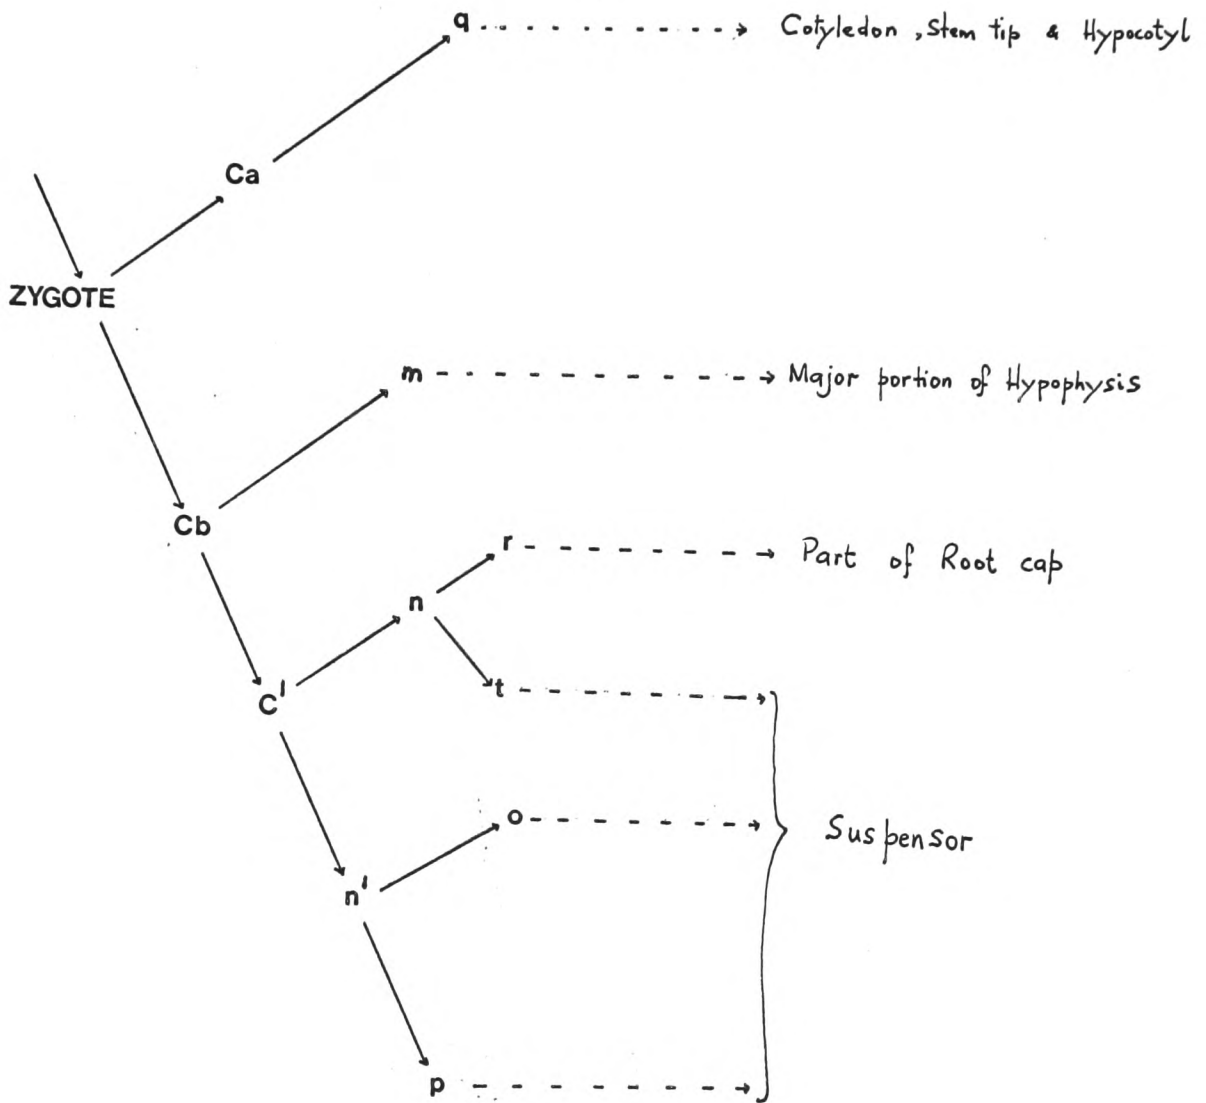 q Cotyledon , Stem tip & Hypocotyl
Ca
ZYGOTE
m Major portion of Hypophysis
Cb
r Part of Root cap
n
t
C'
o
Suspensor
n'
p